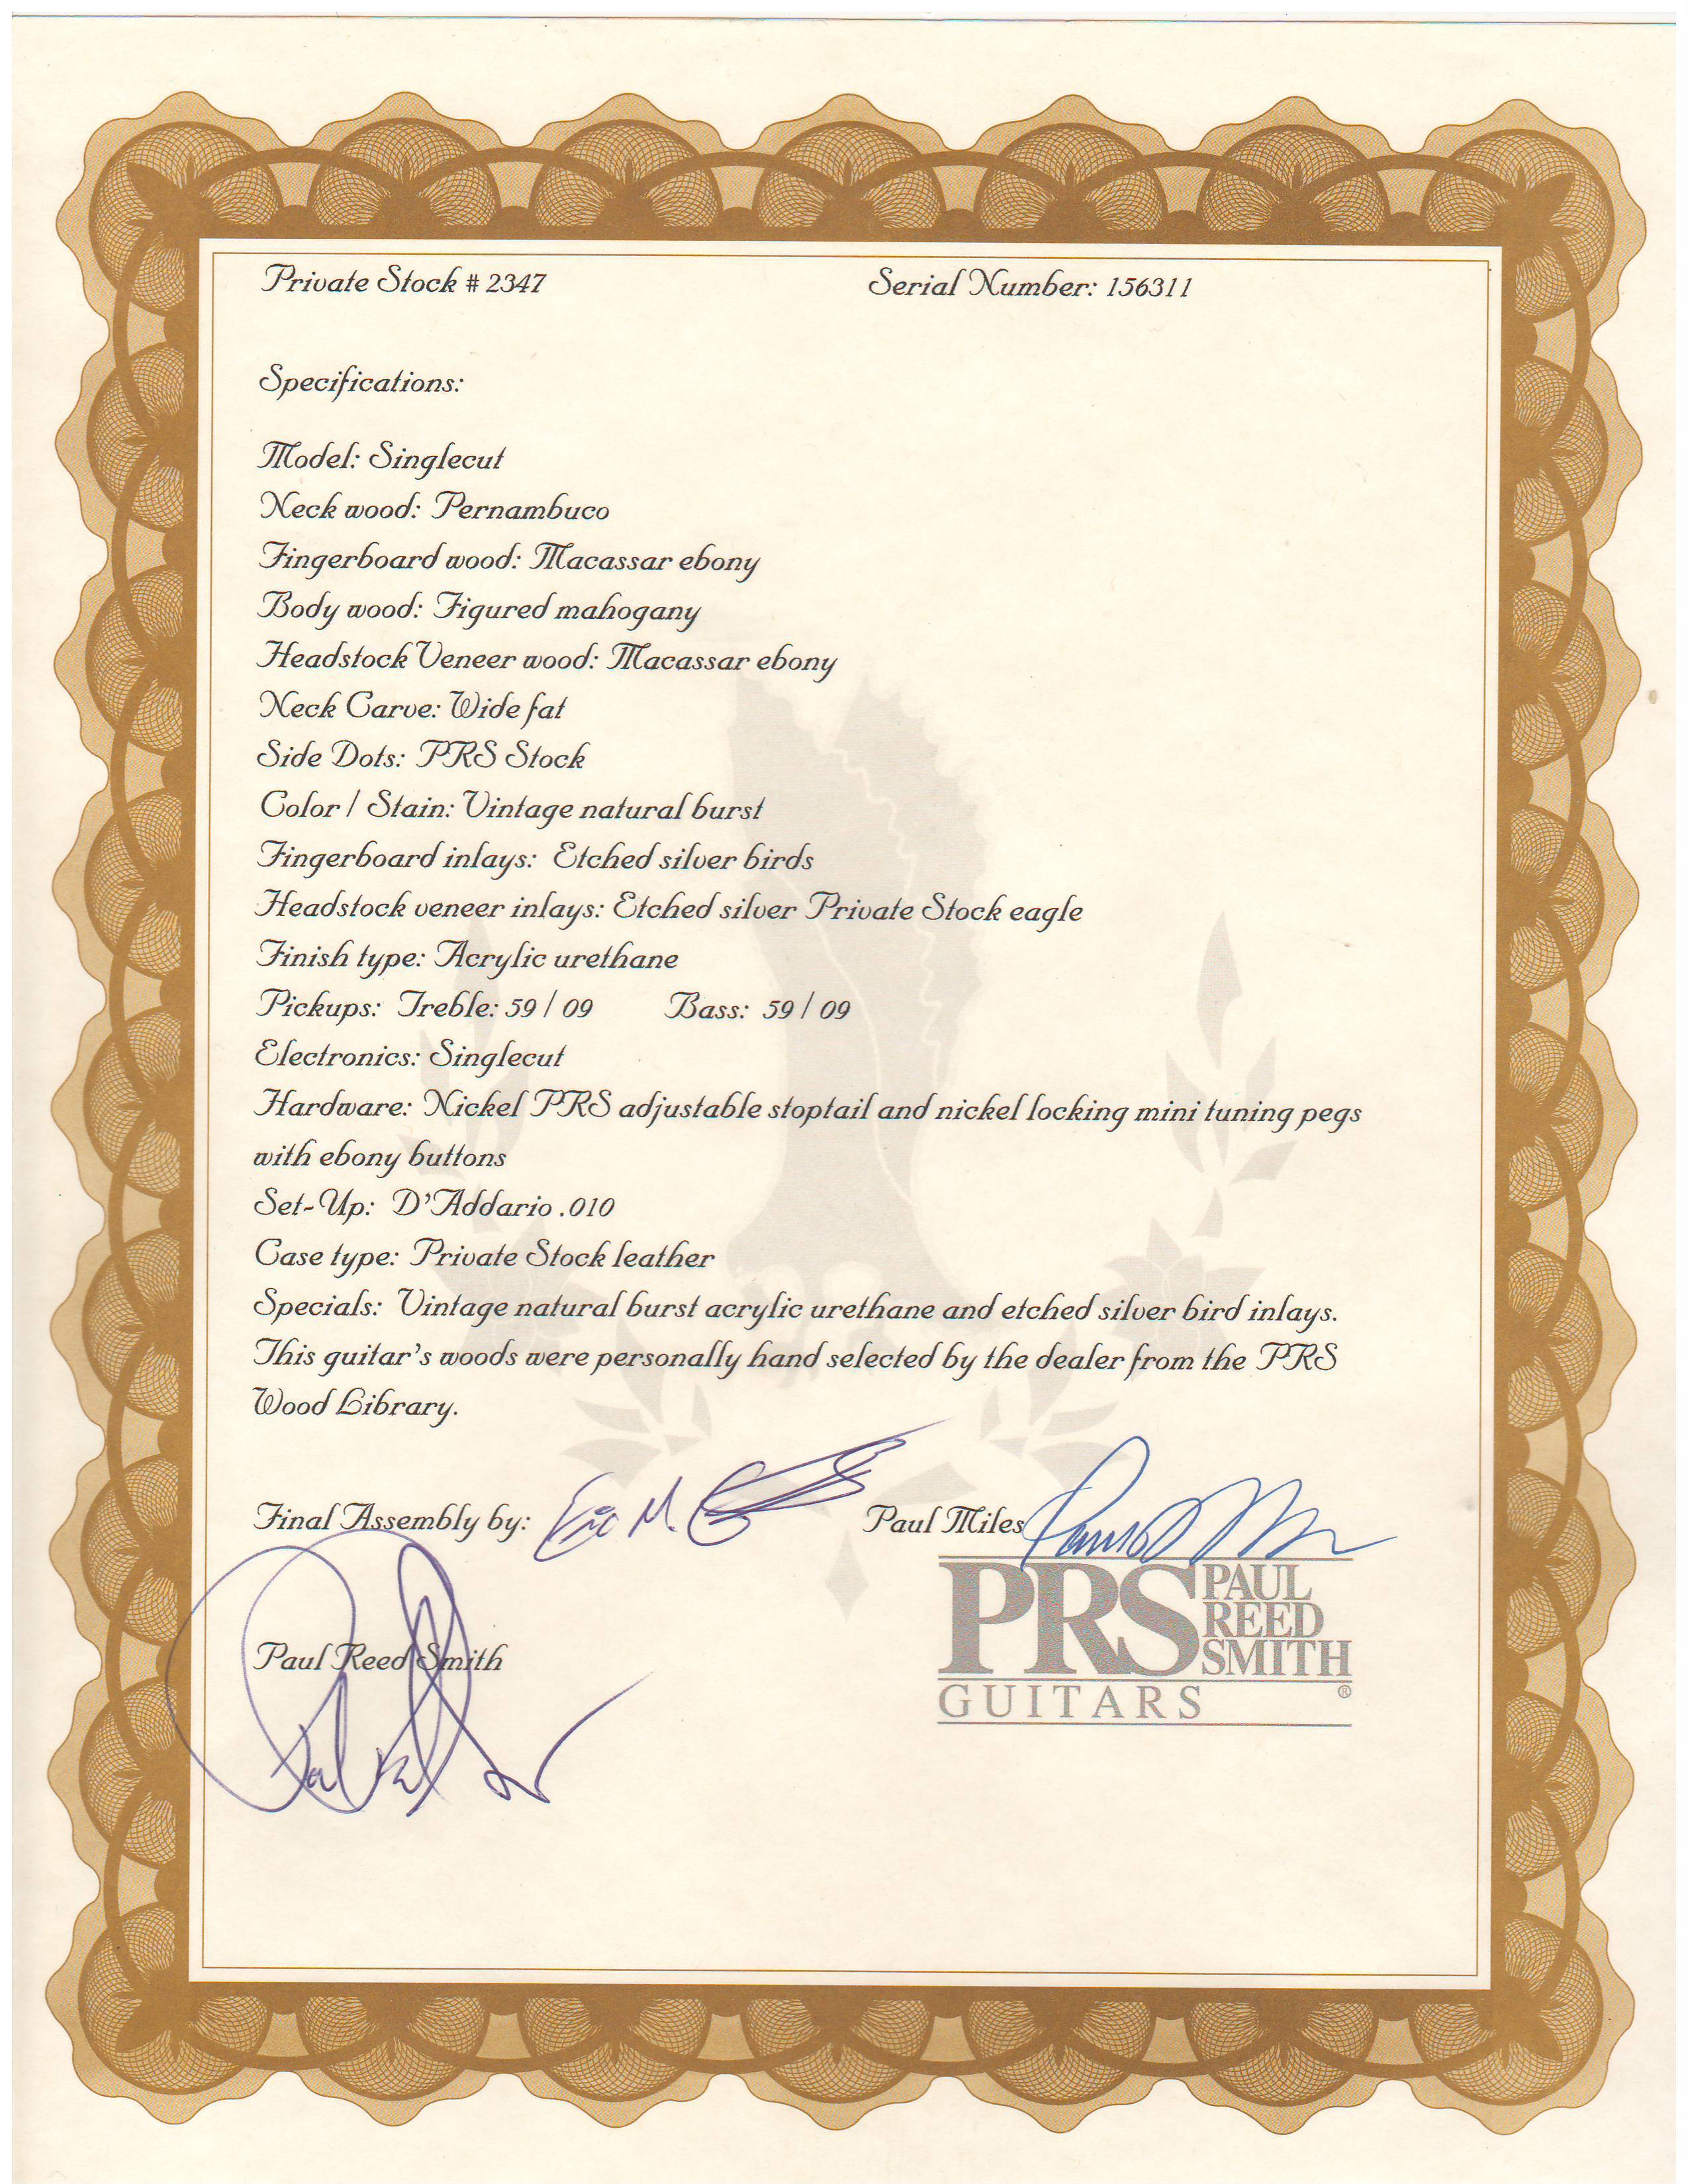 Private Stock # 2347 Serial Number: 156311
Specifications:
Model: Singlecut
Neck wood: Pernambuco
Fingerboard wood: Macassar ebony
Body wood: Figured mahogany
Headstock Veneer wood: Macassar ebony
Neck Carve: Wide fat
Side Dots: PRS Stock
Color / Stain: Vintage natural burst
Fingerboard inlays: Etched silver birds
Headstock veneer inlays: Etched silver Private Stock eagle
Finish type: Acrylic urethane
Pickups: Treble: 59 / 09 Bass: 59 / 09
Electronics: Singlecut
Hardware: Nickel PRS adjustable stoptail and nickel locking mini tuning pegs
with ebony buttons
Set-Up: D'Addario .010
Case type: Private Stock leather
Specials: Vintage natural burst acrylic urethane and etched silver bird inlays.
This guitar's woods were personally hand selected by the dealer from the PRS
Wood Library.
Final Assembly by: Eric M. Paul Miles
Paul Reed Smith
PRS PAUL
REED
SMITH
GUITARS ®